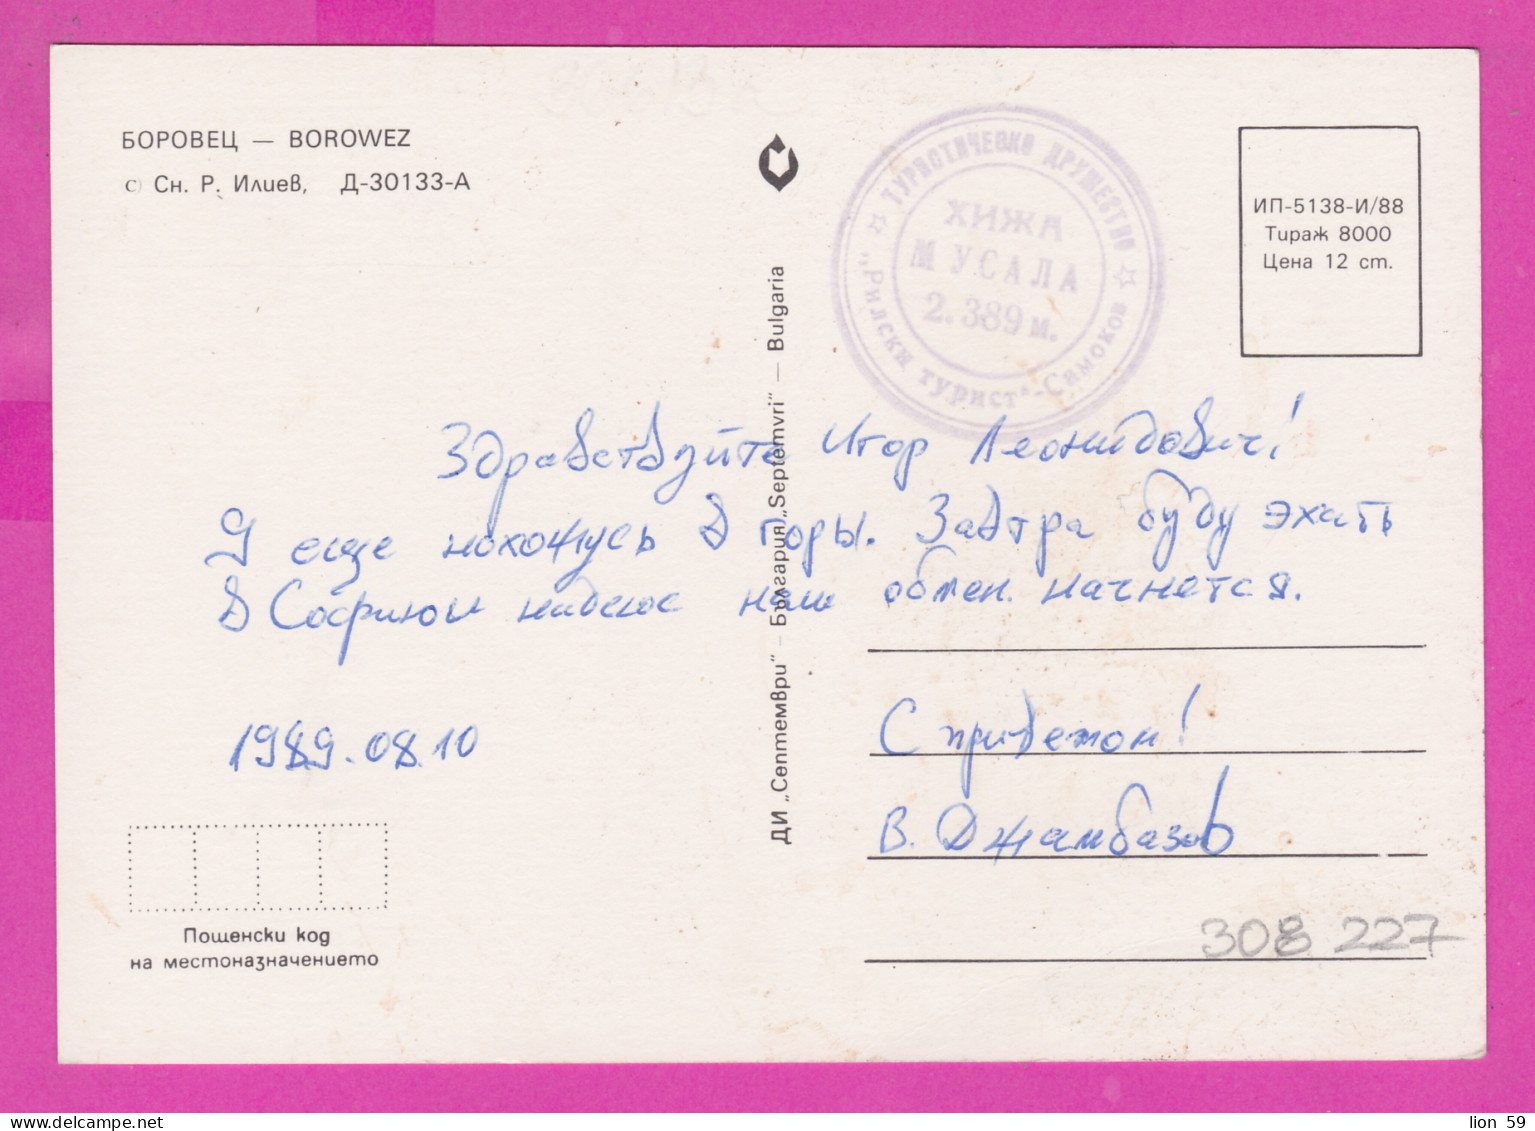 БОРОВЕЦ — BOROWEZ
с) Сн. Р. Илиев, Д-30133-А
ТУРИСТИЧЕСКО ДРУЖЕСТВО
„Рилски турист"-Самоков
ХИЖА
МУСАЛА
2.389 м.
ИП-5138-И/88
Тираж 8000
Цена 12 ст.
ДИ „Септември" – България „Septemvri" – Bulgaria
Здравствуйте Игор Леонидович!
Я еще нохожусь в горы. Завтра буду эхать
в Софию и надеюс наш обмен начнется.
1989.08.10
С приветом!
В. Джамбазов
Пощенски код
на местоназначението
308 227
lion 59